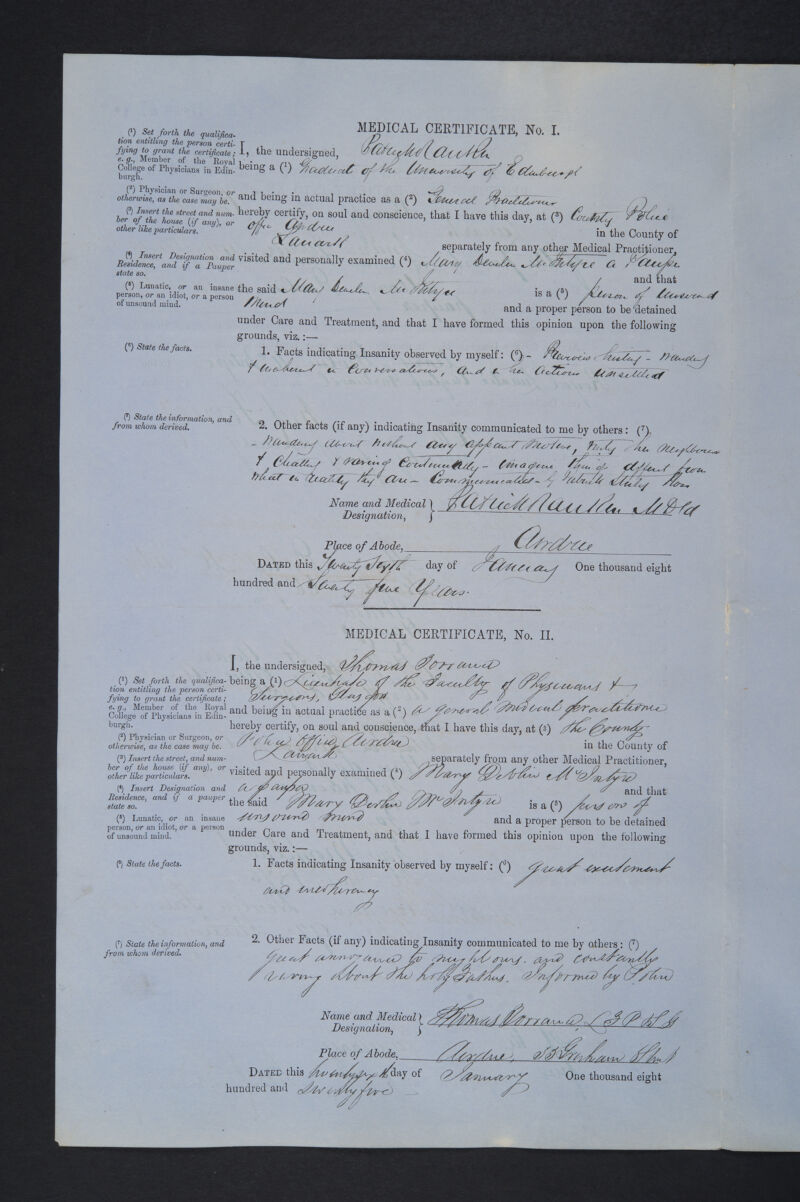 MEDICAL CERTIFICATE, No. I.
(¹) Set forth the qualifica-
tion entitling the person certi-
fying to grant the certificate;
e. g., Member of the Royal
College of Physicians in Edin-
burgh.
I, the undersigned, Patrick Rankin
being a (¹) Graduate of the University of Edinburgh
(²) Physician or Surgeon, or
otherwise, as the case may be.
and being in actual practice as a (²) General Practitioner
(³) Insert the street and num-
ber of the house (if any), or
other like particulars.
hereby certify, on soul and conscience, that I have this day, at (³) County Police
Office Airdrie in the County of
Lanark separately from any other Medical Practitioner,
(⁴) Insert Designation and
Residence, and if a Pauper
state so.
visited and personally examined (⁴) Mary Devlin McIntyre a Pauper
and that
(⁵) Lunatic, or an insane
person, or an idiot, or a person
of unsound mind.
the said Mary Devlin McIntyre is a (⁵) person of unsound
Mind and a proper person to be detained
under Care and Treatment, and that I have formed this opinion upon the following
grounds, viz.:—
(⁶) State the facts.
1. Facts indicating Insanity observed by myself: (⁶) - Previous history -
& incoherent in conversations, and in her actions unsettled
(⁷) State the information, and
from whom derived.
2. Other facts (if any) indicating Insanity communicated to me by others: (⁷).
- Wandering about without any apparent motive, her neighbours
& & raving continually - imagines things different from
what in reality they are - Communicated by
Name and Medical
Designation,
Patrick Rankin M D
Place of Abode, Airdrie
DATED this Twenty Sixth day of January One thousand eight
hundred and Seventy five Years.
MEDICAL CERTIFICATE, No. II.
I, the undersigned, Thomas Torrance
(¹) Set forth the qualifica-
tion entitling the person certi-
fying to grant the certificate;
e. g., Member of the Royal
College of Physicians in Edin-
burgh.
being a (¹) Licentiate of the Faculty of Physicians &
Surgeons, Glasgow
and being in actual practice as a (²) a general medical practitioner
(²) Physician or Surgeon, or
otherwise, as the case may be.
hereby certify, on soul and conscience, that I have this day, at (³) the County
Police Office Airdrie in the County of
(³) Insert the street, and num-
ber of the house (if any), or
other like particulars.
Lanark separately from any other Medical Practitioner,
visited and personally examined (⁴) Mary Devlin McIntyre
(⁴) Insert Designation and
Residence, and if a pauper
state so.
a pauper and that
the said Mary Devlin McIntyre is a (⁵) person of
(⁵) Lunatic, or an insane
person, or an idiot, or a person
of unsound mind.
unsound mind and a proper person to be detained
under Care and Treatment, and that I have formed this opinion upon the following
grounds, viz.:—
(⁶) State the facts.
1. Facts indicating Insanity observed by myself: (⁶) great excitement
and incoherency
(⁷) State the information, and
from whom derived.
2. Other Facts (if any) indicating Insanity communicated to me by others: (⁷)
great annoyance to neighbours. and constantly
raving about the holy Fathers. Informed by Police
Name and Medical
Designation,
Thomas Torrance L F P & S G
Place of Abode, Airdrie, Graham Street
DATED this twenty sixth day of January One thousand eight
hundred and Seventy five